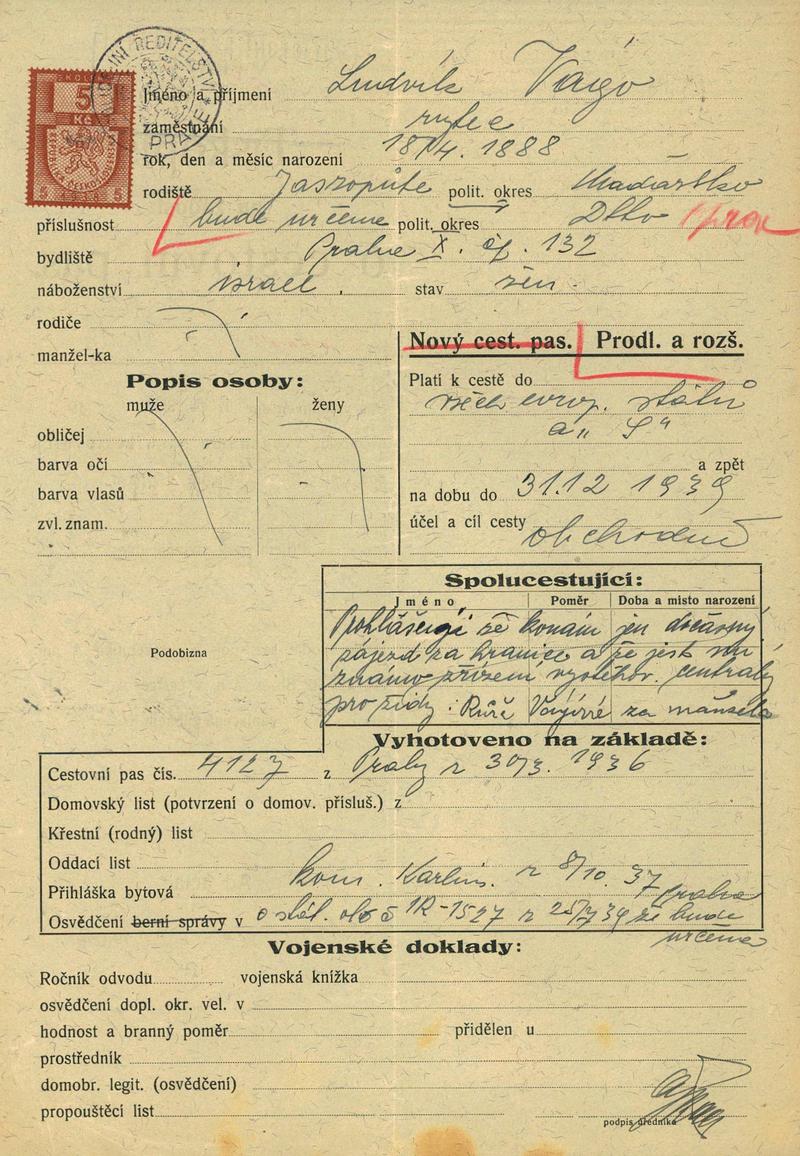 ŘEDITELSTVÍ
PRAZE
KOLEK
5
Kč
5 5
Jméno a příjmení Ludvík Vágó
zaměstnání rytec
rok, den a měsíc narození 18/4. 1888
rodiště Jaszopáte polit. okres Maďarsko
příslušnost bude určena polit. okres Dtto
bydliště Praha X. čp. 132
náboženství israel. stav žen.
rodiče
manžel-ka
Nový cest. pas. Prodl. a rozš.
Popis osoby:
muže ženy
obličej
barva očí
barva vlasů
zvl. znam.
Platí k cestě do
všech evrop. států
a „S"
a zpět
na dobu do 31.12 1939
účel a cíl cesty obchodní
Podobizna
Spolucestující:
Jméno Poměr Doba a místo narození
Prohlašuji že konám jen dočasný
zájezd za hranice a že jest mi
známo zřízení vystěhov. centrály
pro židy. Růž. Vágóvá za manžela
Vyhotoveno na základě:
Cestovní pas čís. 4127 z Prahy z 30/3. 1936
Domovský list (potvrzení o domov. přísluš.) z
Křestní (rodný) list
Oddací list
Přihláška bytová kom. Karlín. z 8/10. 37
Osvědčení berní správy v o stát. obč IR-1527 z 25/7 39 že bude
určena
Vojenské doklady:
Ročník odvodu vojenská knížka
osvědčení dopl. okr. vel. v
hodnost a branný poměr přidělen u
prostředník
domobr. legit. (osvědčení)
propouštěcí list
podpis úředníka